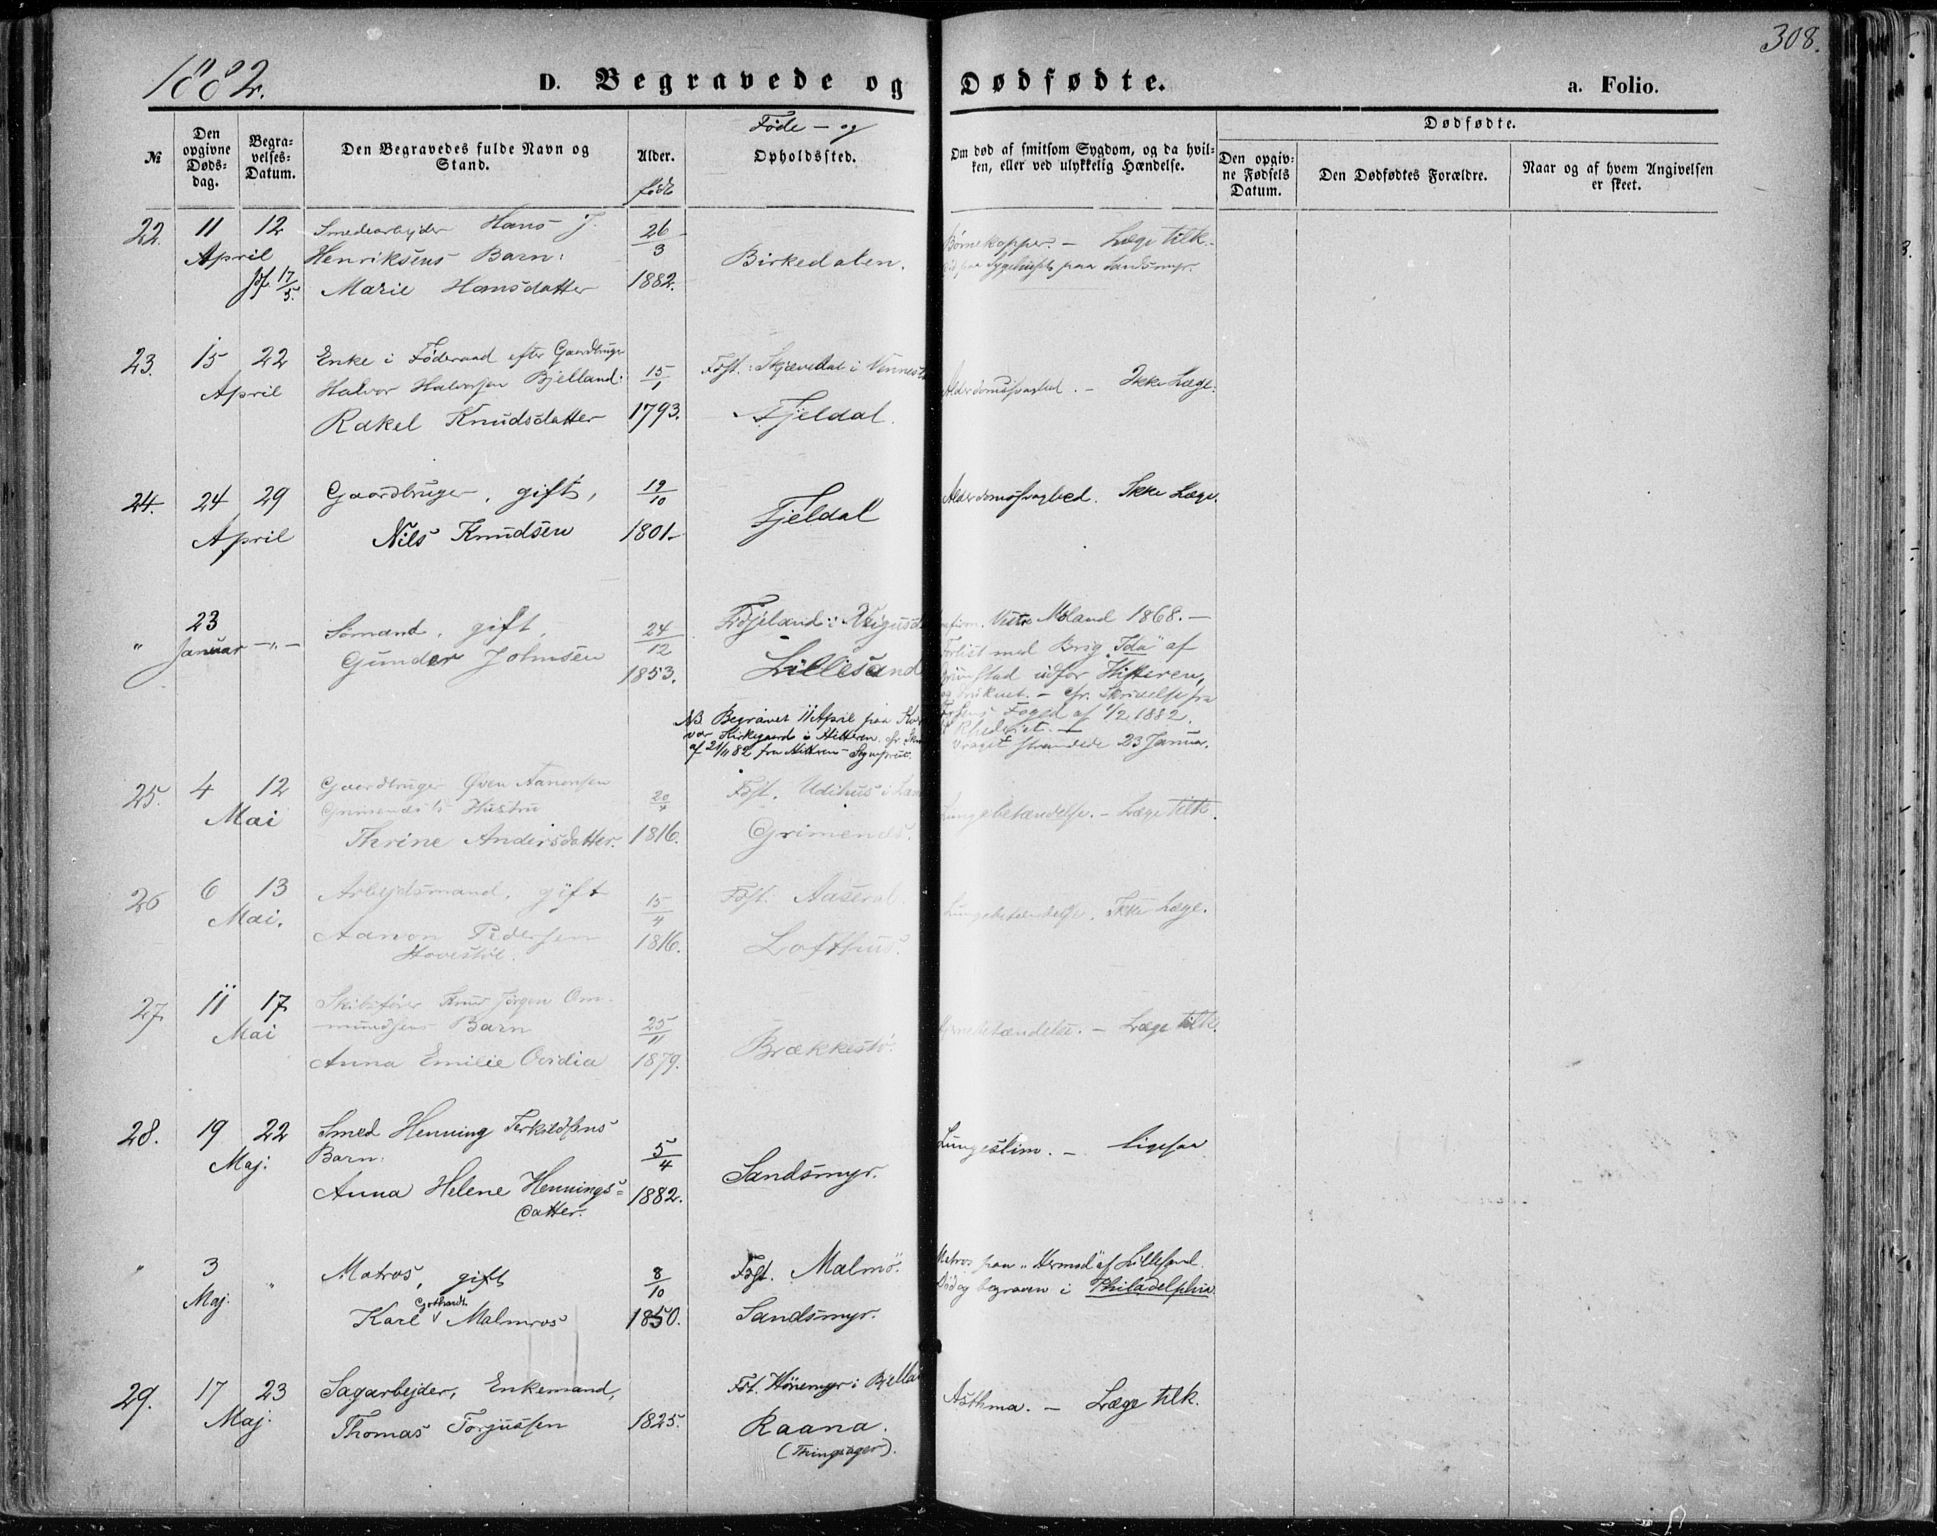 308.
1882.
D. Begravede og Dødfødte.
a. Folio.
№
Den opgivne Dødsdag.
Begravelses-Datum.
Den Begravedes fulde Navn og Stand.
Alder.
født
Føde- og
Opholdssted.
Om død af smitsom Sygdom, og da hvilken, eller ved ulykkelig Hændelse.
Dødfødte.
Den opgivne Fødsels Datum.
Den Dødfødtes Forældre.
Naar og af hvem Angivelsen er skeet.
22. 11 12 Smedearbejder Hans J. 26/3 Børnekopper. - Læge tilk.
April Henriksens Barn: Birkedalen. paa Sygehuset paa Sandsmyr.
Jf 17/5. Marie Hansdatter 1882.
23. 15 22 Enke i Føderaad efter Gaardbruger Fdst. Skjævedal i Vennesl
April Halvor Halvorsen Bjelland: 15/1 Alderdomssvaghed. - Ikke Læge.
Rakel Knudsdatter 1793. Fjeldal.
24. 24 29 Gaardbruger, gift, 19/10 Alderdomssvaghed. Ikke Læge.
April Nils Knudsen 1801. Fjeldal
" 23 Januar -"- Sømand, gift, 24/12 i Vegusd Vestre Moland 1868. -
Gunder Johnsen 1853. Lillesand Forlist med Brig "Ida" af
Grimstad udfor Hitteren,
og druknet. - cfr. Skrivelse fra
Foged af 1/2 1882.
NB Begravet 11 April paa
Kirkegaard i Hitteren. cfr
af 21/11 82 fra Hitteren Sognepræst.
Vraget strandede 23 Januar.
25. 4 12 Gaardbruger Øven Aanonsen Fdst. Udihus i Lan
Mai Grimenæs's Hustru 20/4 Lungebetændelse. - Læge tilk.
Therine Andersdatter. 1816. Grimenæs.
26 6 13 Arbejdsmand, gift 15/4 Fdst. Aaseral
Mai. Aanon Pedersen 1816. Lofthus. Lungebetændelse. Ikke Læge.
Hovestøl.
27. 11 17 Skibsfører Knud Jørgen Om-
Mai mundsens Barn 25/11 Brækkestø. Hjernebetændelse. - Læge tilk.
Anna Emilie Ovidia 1879.
28. 19 22 Smed Henning Terkildsens
Maj. Barn: 5/4 Lungeslim. - ligesaa
Anna Helene Hennings- 1882. Sandsmyr.
datter.
" 3 " Matros, gift 8/10 Fdst. Malmø. Matros paa "Hermod" af Lillesand.
Maj. Død og begraven i Philadelphia.
Karl Gothardt Malmros 1850. Sandsmyr.
29. 17 23 Sagarbejder, Enkemand, Fdt. Hønemyr i Bjella
Maj. Thomas Torjussen 1825. Raana. Asthma. - Læge tilk.
(Tingsager).